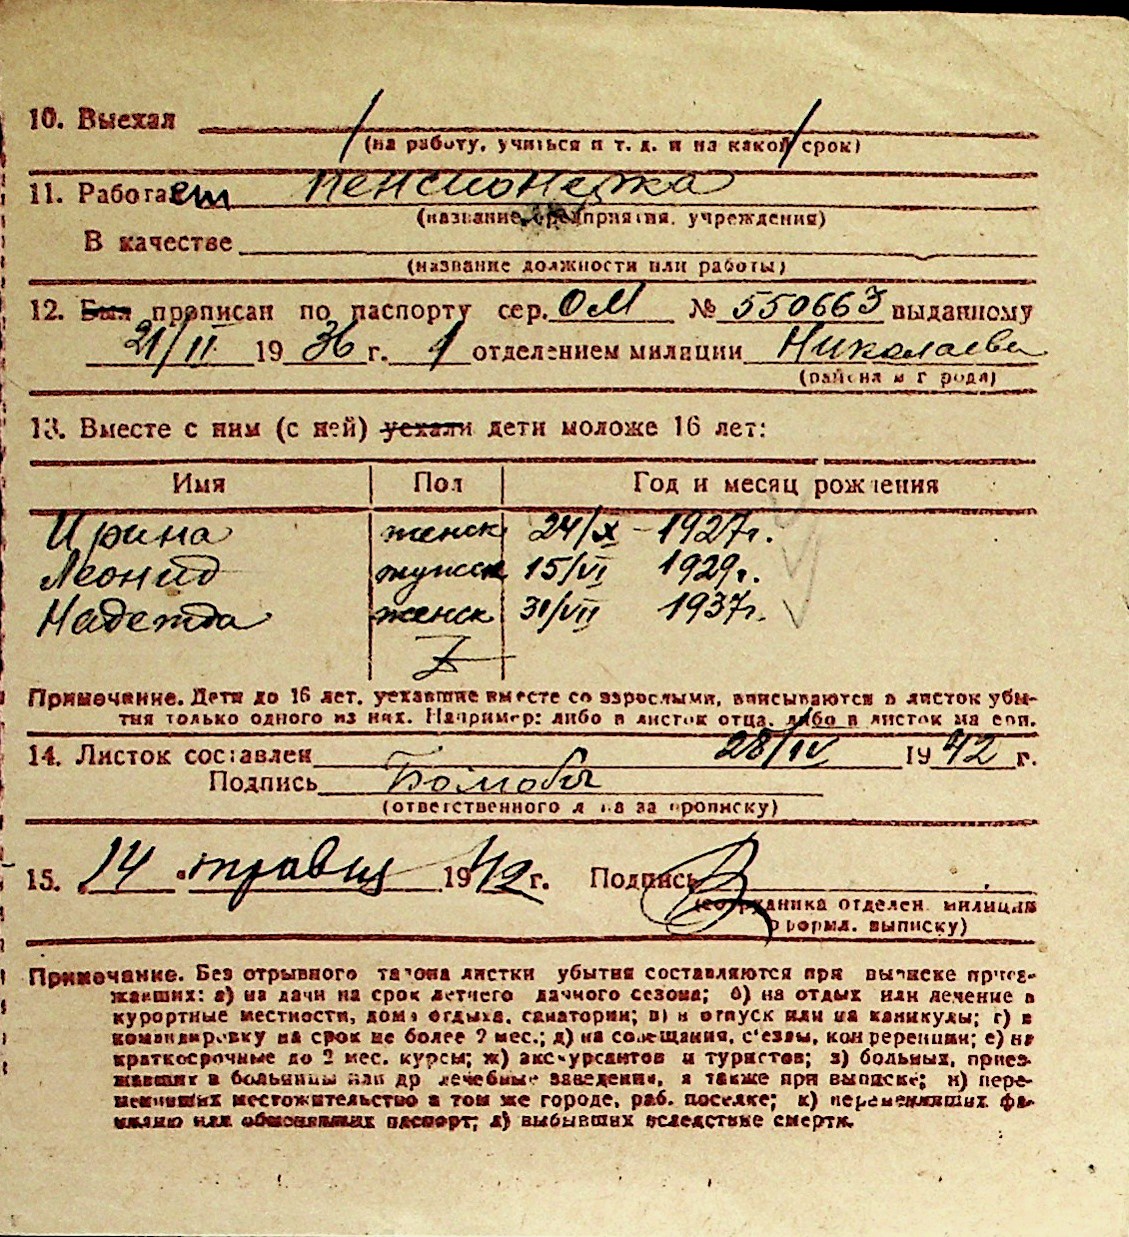 10. Выехал
(на работу, учиться и т. д. и на какой срок)
11. Работает пенсионерка
(название предприятия, учреждения)
В качестве
(название должности или работы)
12. Был прописан по паспорту сер. ОМ № 550663 выданному
21/II 1936 г. 1 отделением милиции Николаева
(района и города)
13. Вместе с ним (с ней) уехали дети моложе 16 лет:
Имя Пол Год и месяц рождения
Ирина женск 24/X - 1927г.
Леонид мужск 15/VI 1929г.
Надежда женск 31/VII 1937г.
Z
Примечание. Дети до 16 лет, уехавшие вместе со взрослыми, вписываются в листок убы-
тия только одного из них. Например: либо в листок отца, либо в листок матери.
14. Листок составлен 28/IV 1942 г.
Подпись
(ответственного лица за прописку)
15. 14 " травня 1942 г. Подпись
(сотрудника отделен. милиции
оформл. выписку)
Примечание. Без отрывного талона листки убытия составляются при выписке приез-
жавших: а) на дачи на срок летнего дачного сезона; б) на отдых или лечение в
курортные местности, дома отдыха, санатории; в) в отпуск или на каникулы; г) в
командировку на срок не более 2 мес.; д) на совещания, с'езды, конференции; е) на
краткосрочные до 2 мес. курсы; ж) экскурсантов и туристов; з) больных, приез-
жавших в больницы или др лечебные заведения, а также при выписке; и) пере-
менивших местожительство в том же городе, раб. поселке; к) переменивших фа-
милию или обменявших паспорт; л) выбывших вследствие смерти.